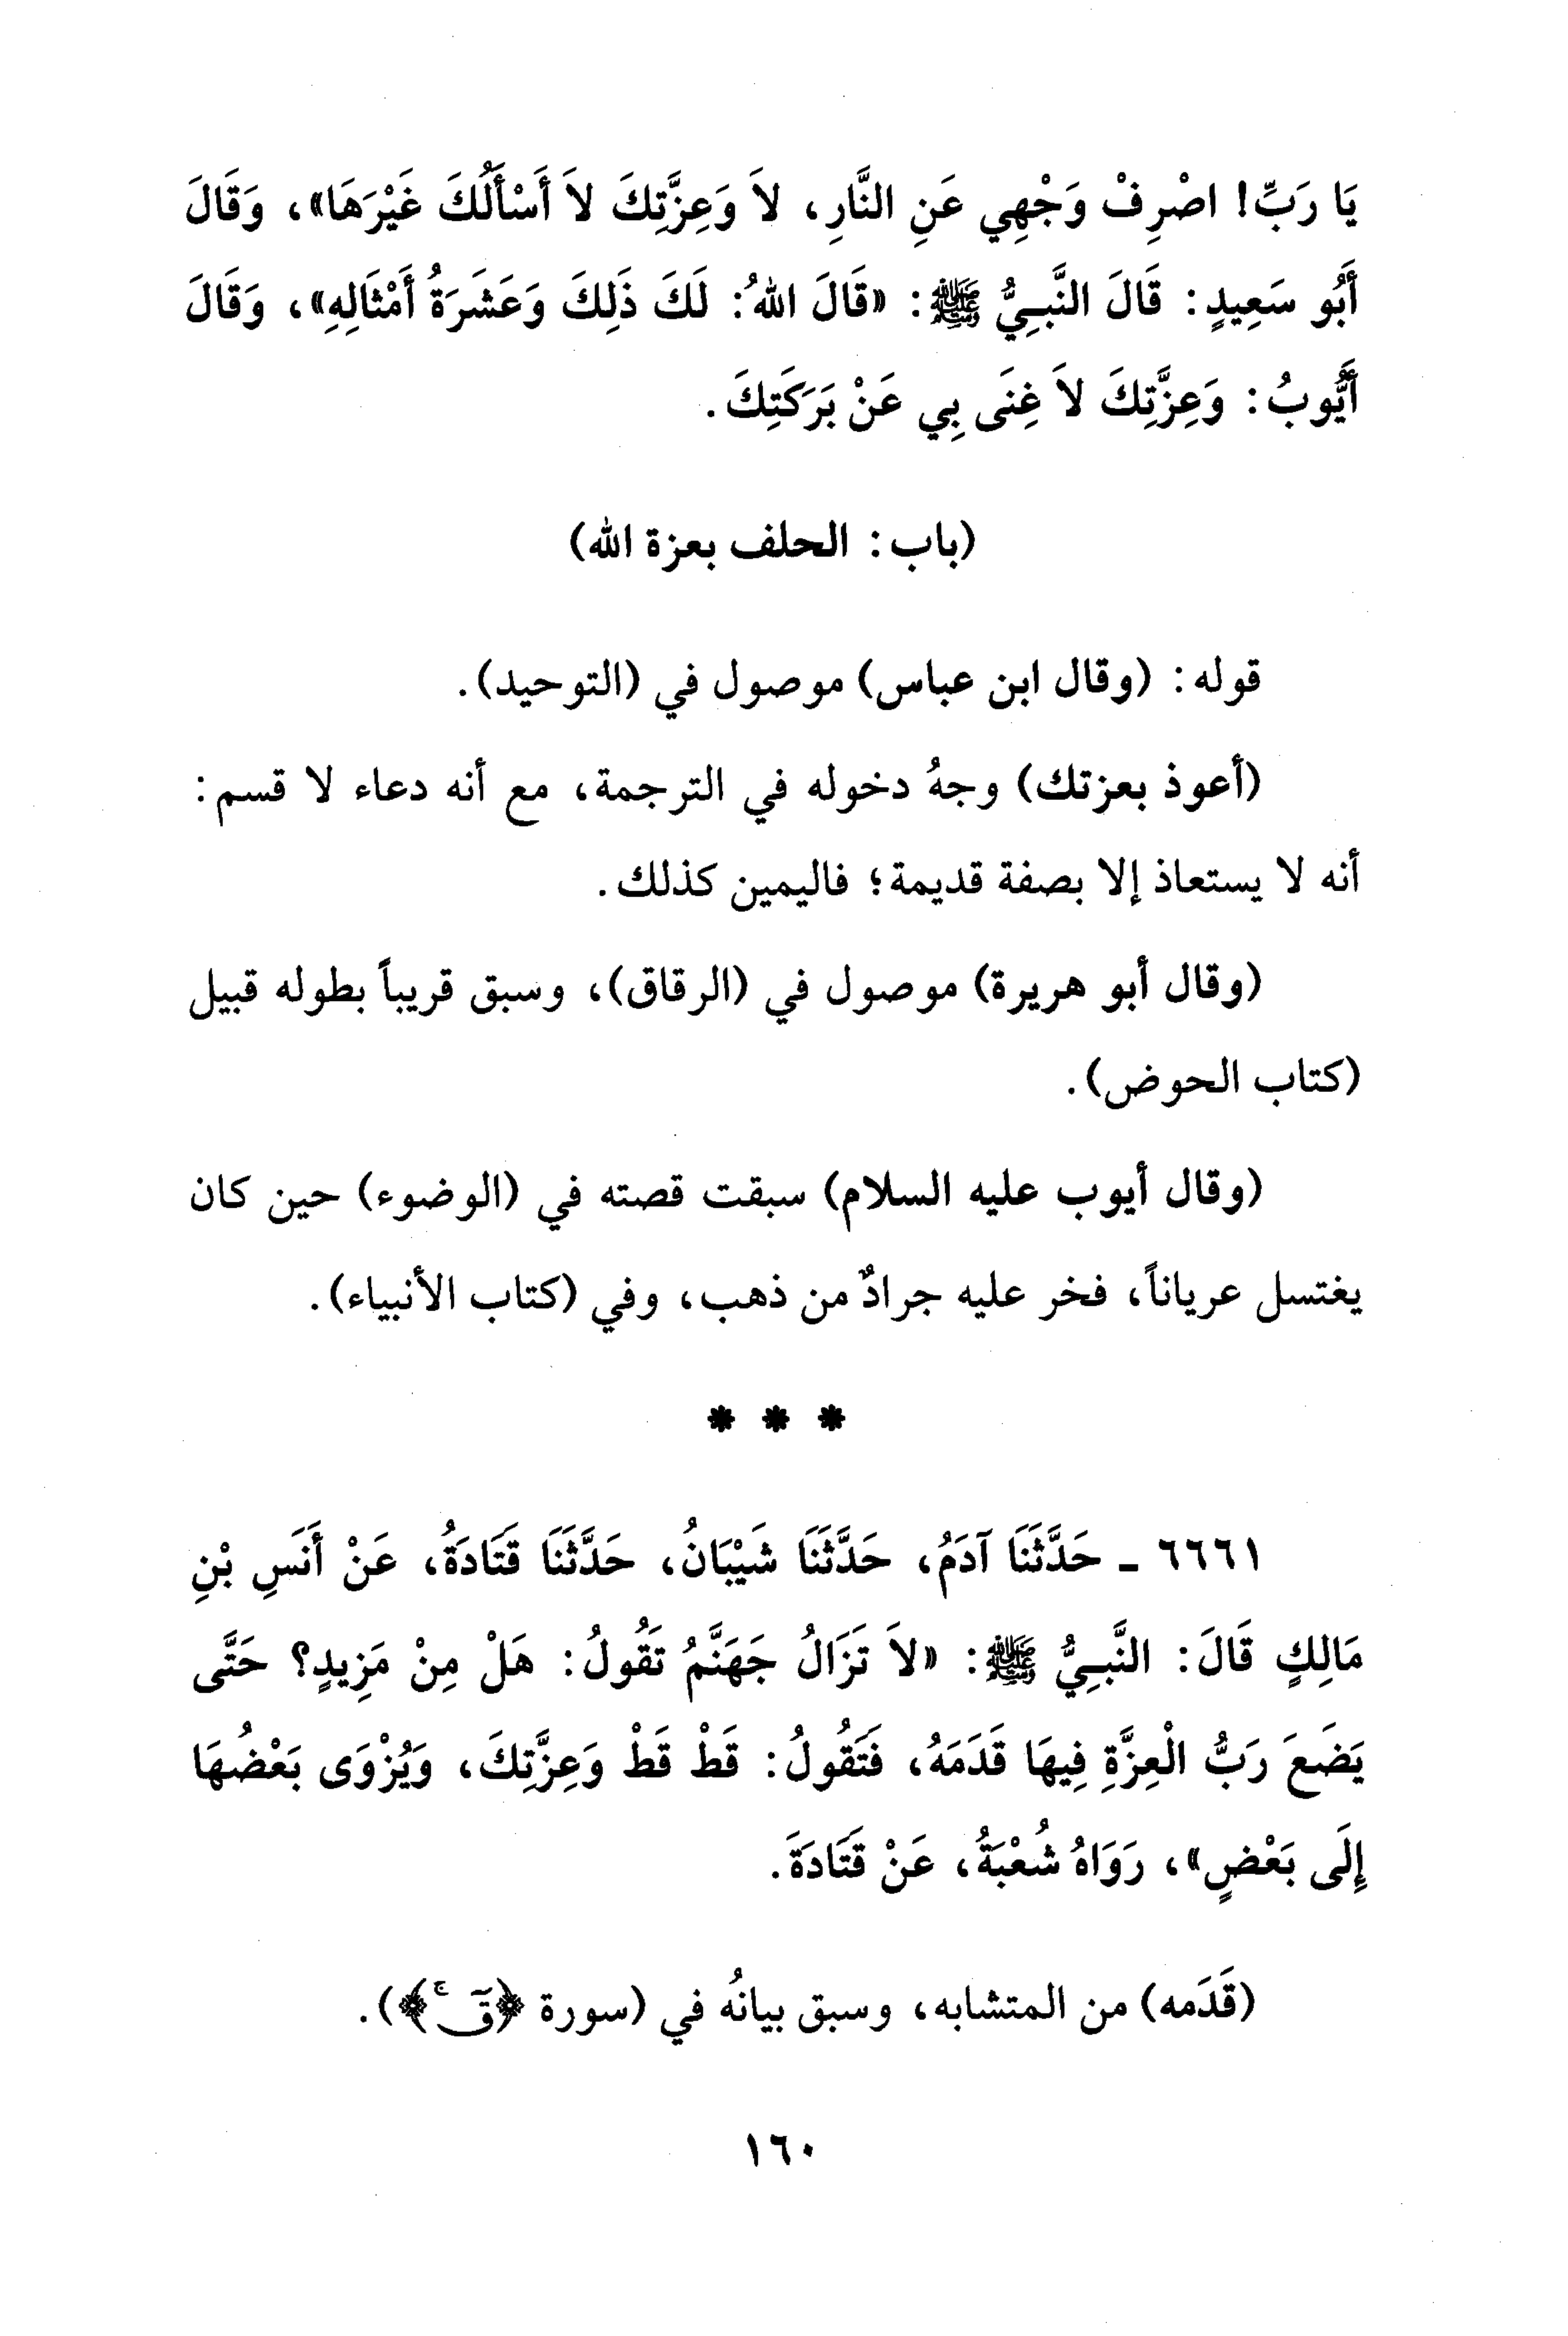 يَا رَبِّ! اصْرِفْ وَجْهِي عَنِ النَّارِ، لاَ وَعِزَّتِكَ لاَ أَسْأَلُكَ غَيْرَهَا»، وَقَالَ
أَبُو سَعِيدٍ: قَالَ النَّبِيُّ ﷺ: «قَالَ اللهُ: لَكَ ذَلِكَ وَعَشَرَةُ أَمْثَالِهِ»، وَقَالَ
أَيُّوبُ: وَعِزَّتِكَ لاَ غِنَى بِي عَنْ بَرَكَتِكَ.
(باب: الحلف بعزة الله)
قوله: (وقال ابن عباس) موصول في (التوحيد).
(أعوذ بعزتك) وجهُ دخوله في الترجمة، مع أنه دعاء لا قسم:
أنه لا يستعاذ إلا بصفة قديمة؛ فاليمين كذلك.
(وقال أبو هريرة) موصول في (الرقاق)، وسبق قريباً بطوله قبيل
(كتاب الحوض).
(وقال أيوب عليه السلام) سبقت قصته في (الوضوء) حين كان
يغتسل عرياناً، فخر عليه جرادٌ من ذهب، وفي (كتاب الأنبياء).
* * *
٦٦٦١ - حَدَّثَنَا آدَمُ، حَدَّثَنَا شَيْبَانُ، حَدَّثَنَا قَتَادَةُ، عَنْ أَنَسِ بْنِ
مَالِكٍ قَالَ: النَّبِيُّ ﷺ: «لاَ تَزَالُ جَهَنَّمُ تَقُولُ: هَلْ مِنْ مَزِيدٍ؟ حَتَّى
يَضَعَ رَبُّ الْعِزَّةِ فِيهَا قَدَمَهُ، فَتَقُولُ: قَطْ قَطْ وَعِزَّتِكَ، وَيُزْوَى بَعْضُهَا
إِلَى بَعْضٍ»، رَوَاهُ شُعْبَةُ، عَنْ قَتَادَةَ.
(قَدَمه) من المتشابه، وسبق بيانُه في (سورة ﴿قٓ ۚ﴾).
١٦٠